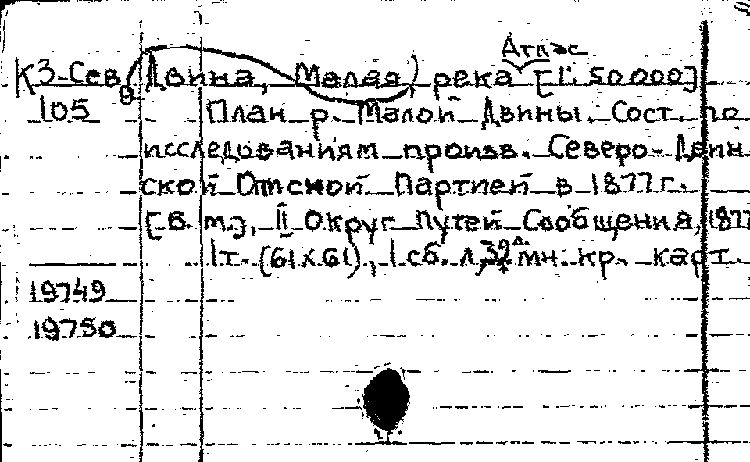 Атлас
К 3-Сев. (Двина, Малая) река [1: 50.000]
в
105 План р. Малой Двины. Сост. по
исследованиям произв. Северо-Двин
ской Описной Партией в 1877 г.
[б. м.], II Округ Путей Сообщения, 1877
1т. (61х61), 1 сб. л, 39 л. мн. кр. карт.
19749
19750